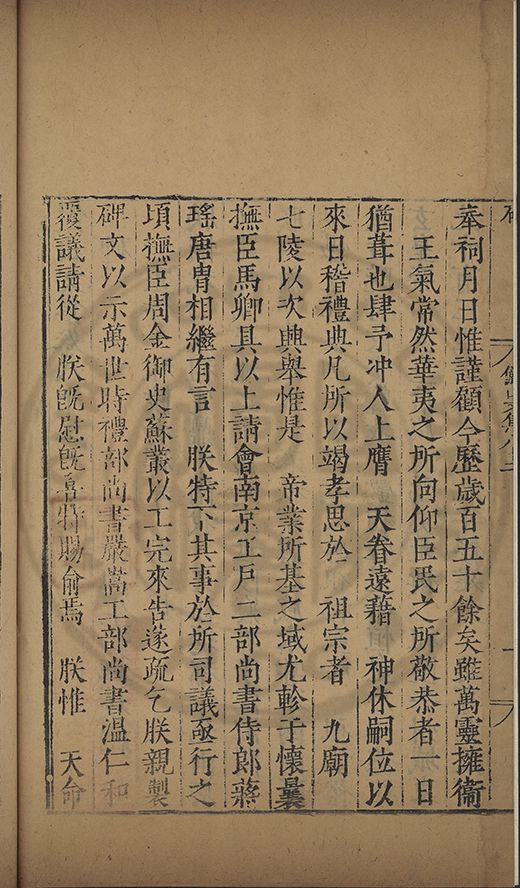 奉祠月日惟謹顧今歷歲百五十餘矣雖萬靈擁衞
王氣常然華夷之所向仰臣民之所敬恭者一日
猶葺也肆予沖人上膺　天眷遠藉　神休嗣位以
來日稽禮典凡所以竭孝思於　祖宗者　九廟
七陵以次興舉惟是　帝業所基之域尤軫于懷曩
撫臣馬卿具以上請會南京工戶二部尚書侍郎蔣
瑤唐胄相繼有言　朕特下其事於所司議亟行之
頃撫臣周金御史蘇叢以工完來告遂疏乞朕親製
碑文以示萬世時禮部尚書嚴嵩工部尚書溫仁和
覆議請從　朕旣慰旣喜特賜俞焉　朕惟　天命